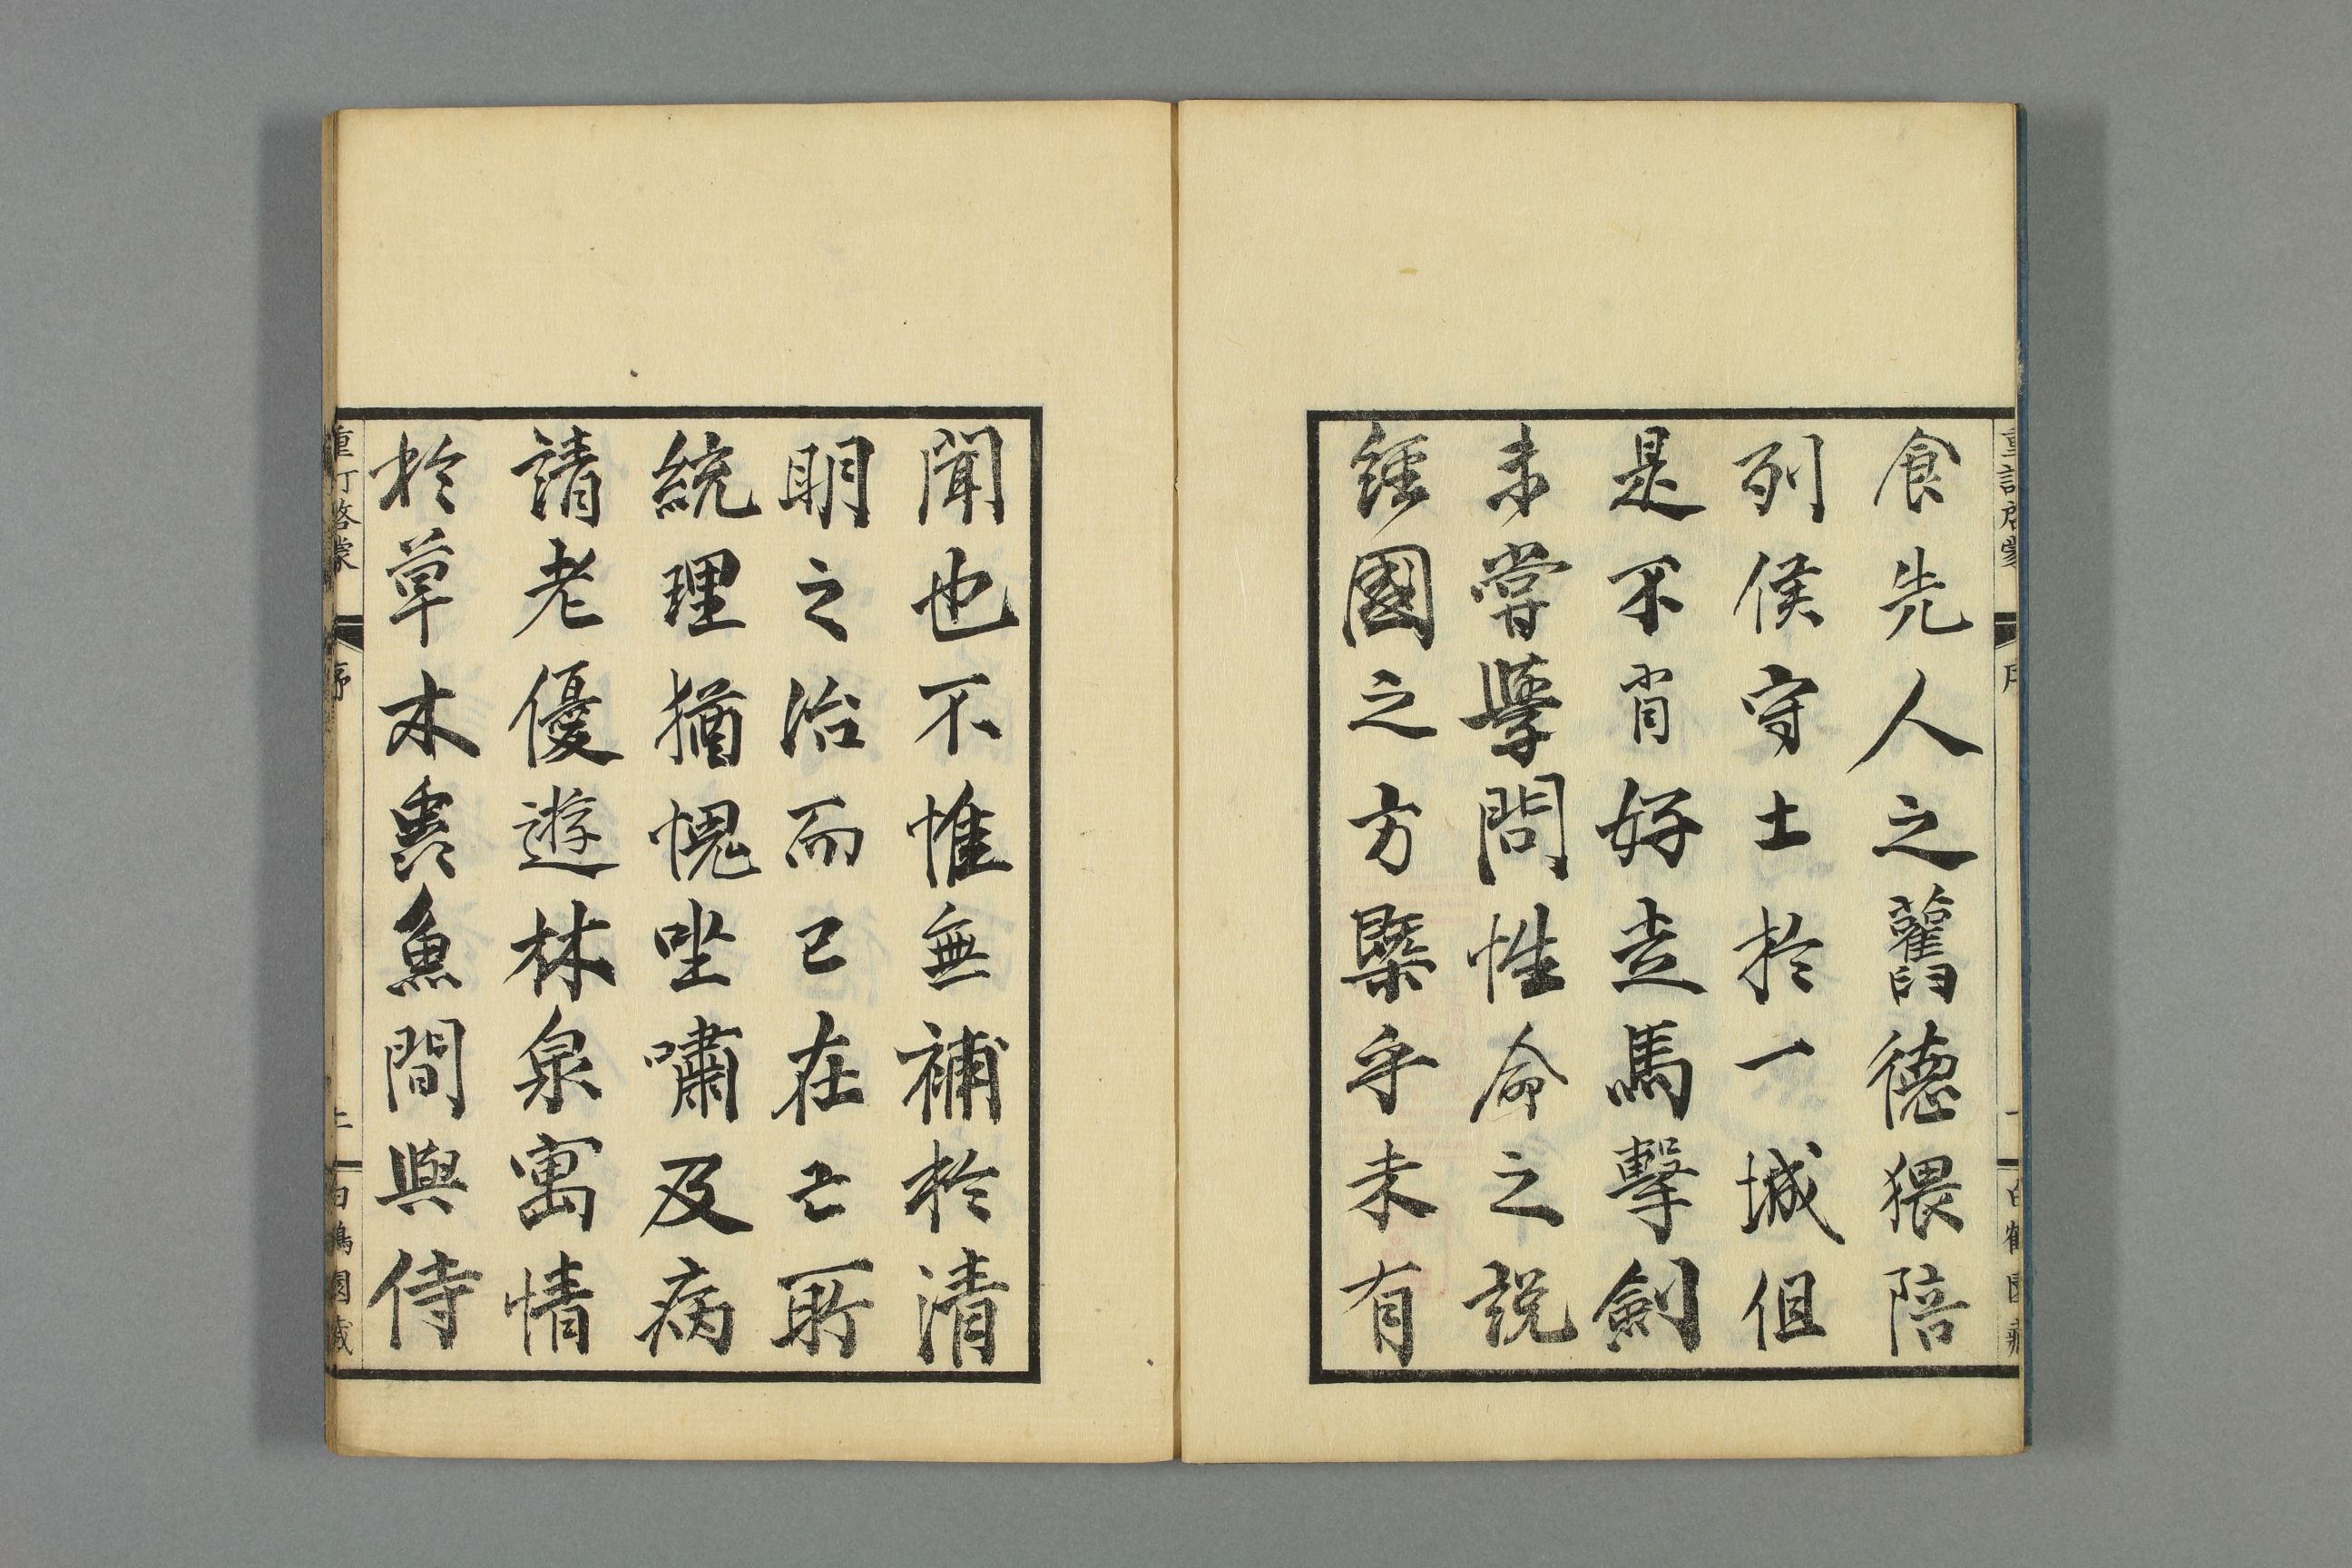 重訂啓蒙 序 白鶴園藏
食先人之舊德猥陪
列侯守土於一城但
是不肖好走馬擊劍
未嘗學問性命之說
經國之方槩乎未有
聞也不惟無補於清
明之治而已在亡所
統理猶愧坐嘯及病
請老優遊林泉寓情
於草木禽魚間與侍
重訂啓蒙 序 白鶴園藏